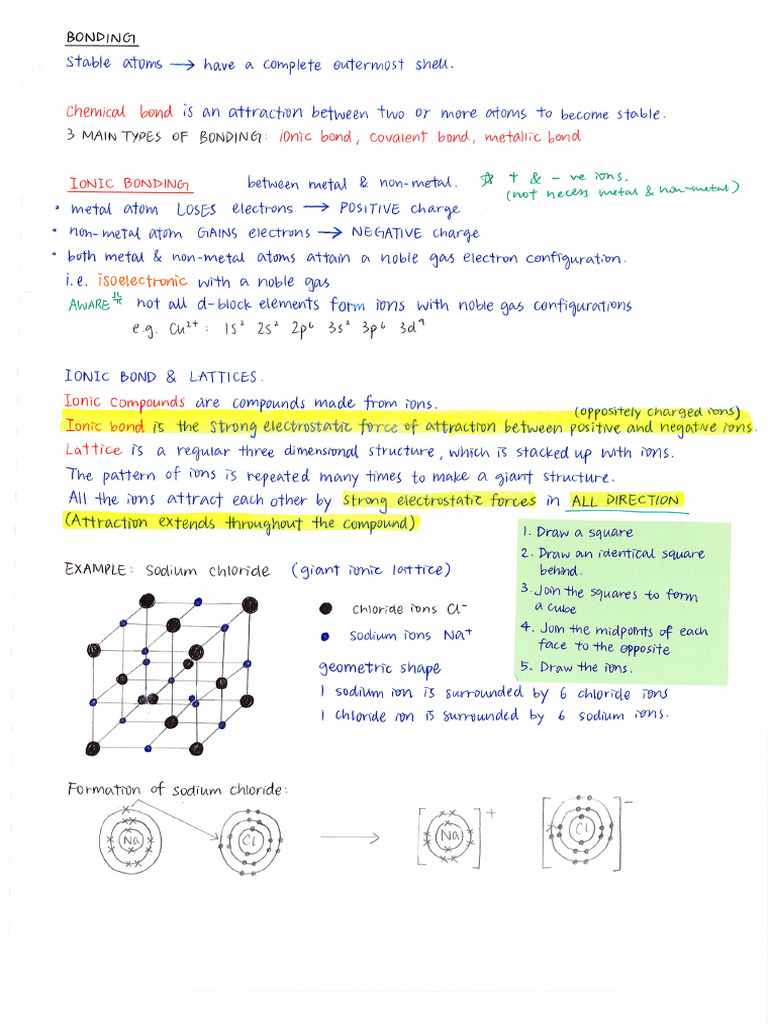 BONDING
Stable atoms → have a complete outermost shell.
Chemical bond is an attraction between two or more atoms to become stable.
3 MAIN TYPES OF BONDING: ionic bond, covalent bond, metallic bond
IONIC BONDING between metal & non-metal. ☆ + & - ve ions.
(not necess metal & non-metal)
• metal atom LOSES electrons → POSITIVE charge
• non-metal atom GAINS electrons → NEGATIVE charge
• both metal & non-metal atoms attain a noble gas electron configuration.
i.e. isoelectronic with a noble gas
AWARE!! not all d-block elements form ions with noble gas configurations
e.g. Cu²⁺: 1s² 2s² 2p⁶ 3s² 3p⁶ 3d⁹
IONIC BOND & LATTICES.
Ionic compounds are compounds made from ions.
(oppositely charged ions)
Ionic bond is the strong electrostatic force of attraction between positive and negative ions.
Lattice is a regular three dimensional structure, which is stacked up with ions.
The pattern of ions is repeated many times to make a giant structure.
All the ions attract each other by strong electrostatic forces in ALL DIRECTION
(Attraction extends throughout the compound)
1. Draw a square
2. Draw an identical square
behind.
3. Join the squares to form
a cube
4. Join the midpoints of each
face to the opposite
5. Draw the ions.
EXAMPLE: Sodium chloride (giant ionic lattice)
chloride ions Cl⁻
sodium ions Na⁺
geometric shape
1 sodium ion is surrounded by 6 chloride ions
1 chloride ion is surrounded by 6 sodium ions.
Formation of sodium chloride:
Na Cl → [Na]⁺ [Cl]⁻